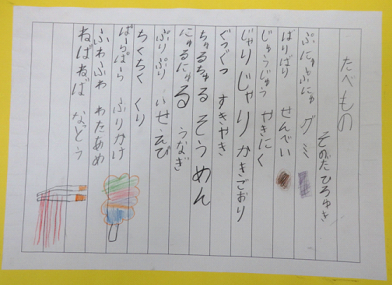 たべもの
そのだひろゆき
ぷにゅぷにゅ グミ
ばりばり せんべい
じゅうじゅう やきにく
じゃりじゃり かきごおり
ぐつぐつ すきやき
ちゅるちゅる そうめん
にゅるにゅる うなぎ
ぷりぷり いせえび
ちくちく くり
ぱらぱら ふりかけ
ふわふわ わたあめ
ねばねば なっとう